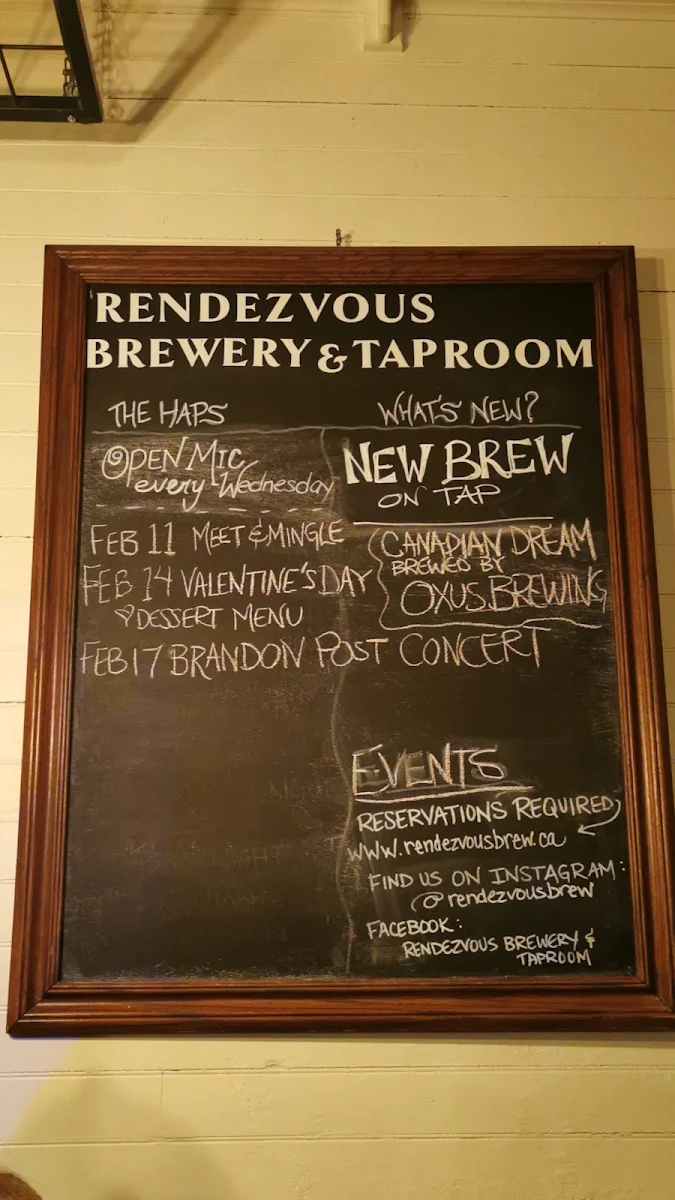 RENDEZVOUS
BREWERY & TAPROOM
THE HAPS
OPEN MIC
every Wednesday
FEB 11 MEET & MINGLE
FEB 14 VALENTINE'S DAY
♡ DESSERT MENU
FEB 17 BRANDON POST CONCERT
WHAT'S NEW?
NEW BREW
ON TAP
CANADIAN DREAM
BREWED BY
OXUS BREWING
EVENTS
RESERVATIONS REQUIRED
www.rendezvousbrew.ca
FIND US ON INSTAGRAM:
@rendezvousbrew
FACEBOOK:
RENDEZVOUS BREWERY &
TAPROOM